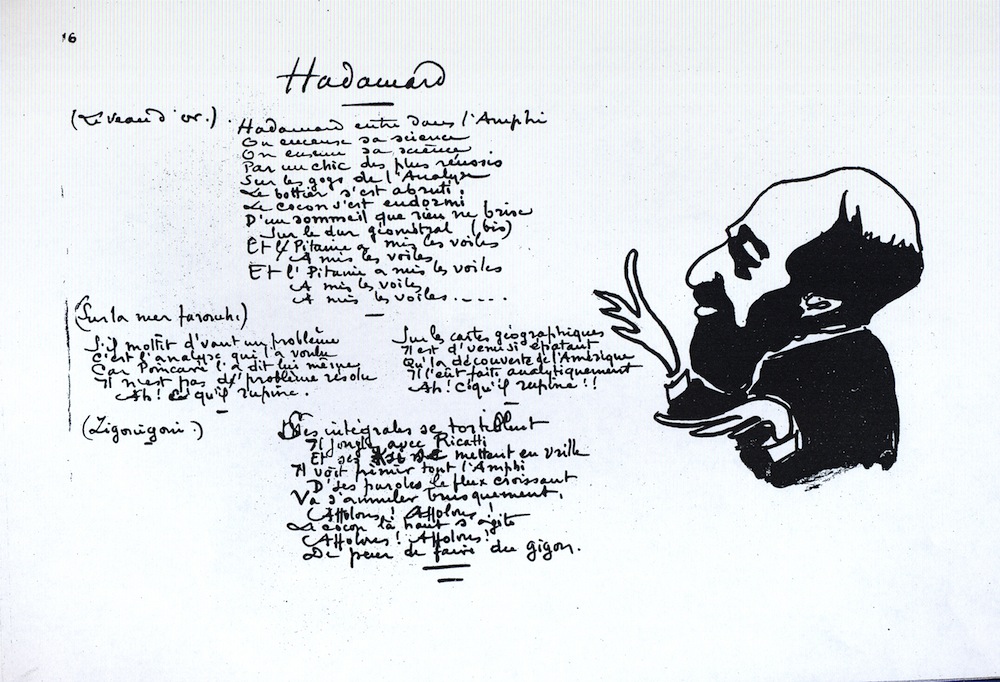 16
Hadamard
(Le veau d'or.)
Hadamard entre dans l'Amphi
On encense sa science
On encense sa science
Par un chic des plus réussis
Sur les gogos de l'Analyse
Le bottier s'est abruti.
Le cocon s'est endormi
D'un sommeil que rien ne brise
Sur le dur géométral (bis)
Et l'Pitaine a mis les voiles
A mis les voiles
Et l'Pitaine a mis les voiles
A mis les voiles
A mis les voiles.....
(Sur la mer farouch.)
S'il mollit d'vant un problème
C'est l'analyse qui l'a voulu
Car Poincaré l'a dit lui même
Il n'est pas d'problème résolu
Ah! C'qu'il rupine.
Sur les cartes géographiques
Il est d'venu si épatant
Qu'la découverte de l'Amérique
Il l'eût faite analytiquement
Ah! C'qu'il rupine!!
(Zigouigoui.)
Ses intégrales se tortillent
Il jongle avec Ricatti
Et ses mettant en vrille
Il voit frémir tout l'Amphi
D'ses paroles le flux croissant
Va s'annuler brusquement.
Affolons! Affolons!
Le cocon là haut s'agite
Affolons! Affolons!
De peur de faire du gigon.